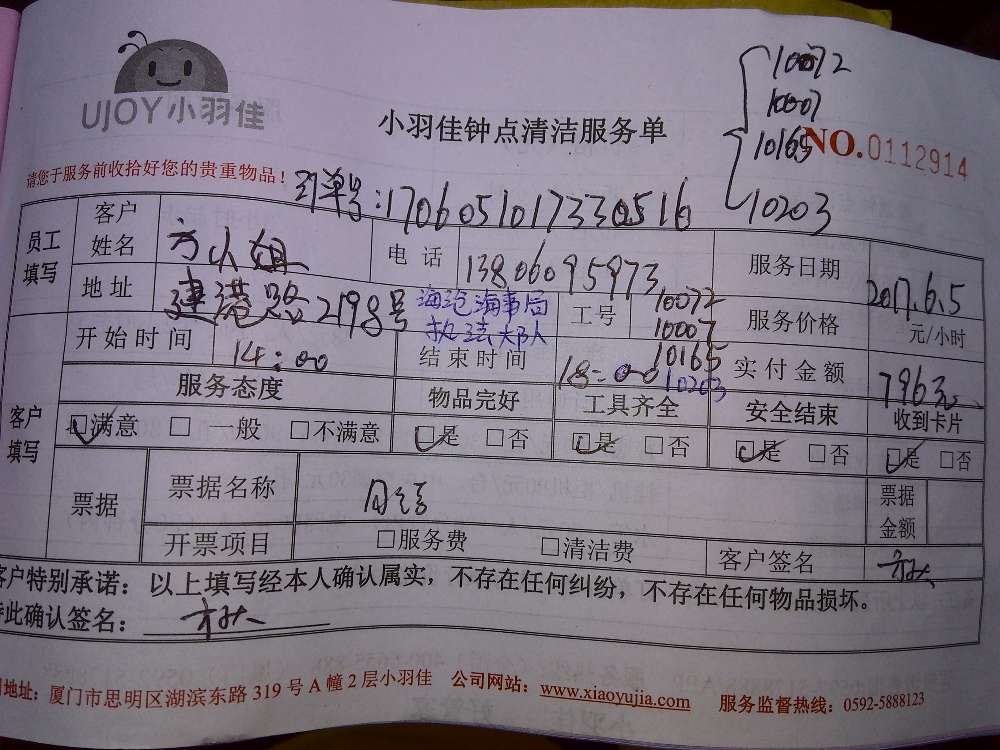 UJOY小羽佳
10072
10007
10165
10203
小羽佳钟点清洁服务单
NO.0112914
请您于服务前收拾好您的贵重物品！
订单号:170605101733 0516
员工填写 客户姓名 方小姐 电话 13806095973 服务日期 2017.6.5
地址 建港路2198号 海沧海事局执法大队 工号 10072 10007 10165 10203 服务价格 元/小时
开始时间 14:00 结束时间 18:00 实付金额 796元
客户填写 服务态度 物品完好 工具齐全 安全结束 收到卡片
☑满意 □一般 □不满意 ☑是 □否 ☑是 □否 ☑是 □否 ☑是 □否
票据 票据名称 月结 票据金额
开票项目 □服务费 □清洁费 客户签名
客户特别承诺：以上填写经本人确认属实，不存在任何纠纷，不存在任何物品损坏。
特此确认签名：
地址：厦门市思明区湖滨东路319号A幢2层小羽佳 公司网站：www.xiaoyujia.com 服务监督热线：0592-5888123